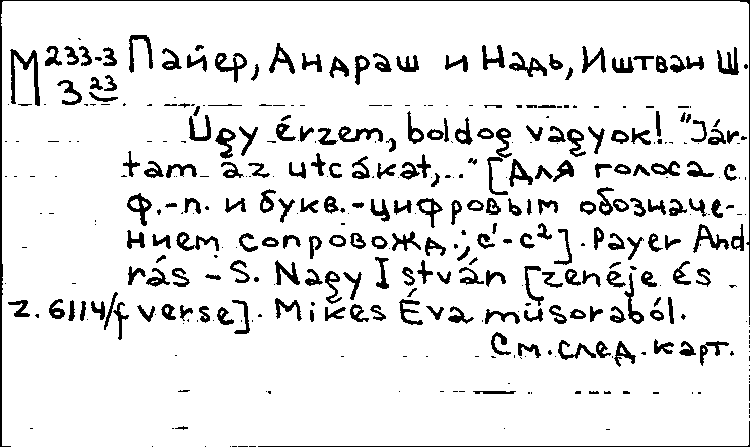 М 233-3 Пайер, Андраш и Надь, Иштван Ш.
3 23
Úgy érzem, boldog vagyok! "Jár-
tam az utcákat,.." [Для голоса с
ф.-п. и букв.-цифровым обозначе-
нием сопровожд.; c¹-c²]. Payer And-
rás - S. Nagy István [zenéje és
Z. 6114/f verse]. Mikes Éva müsorából.
См. след. карт.